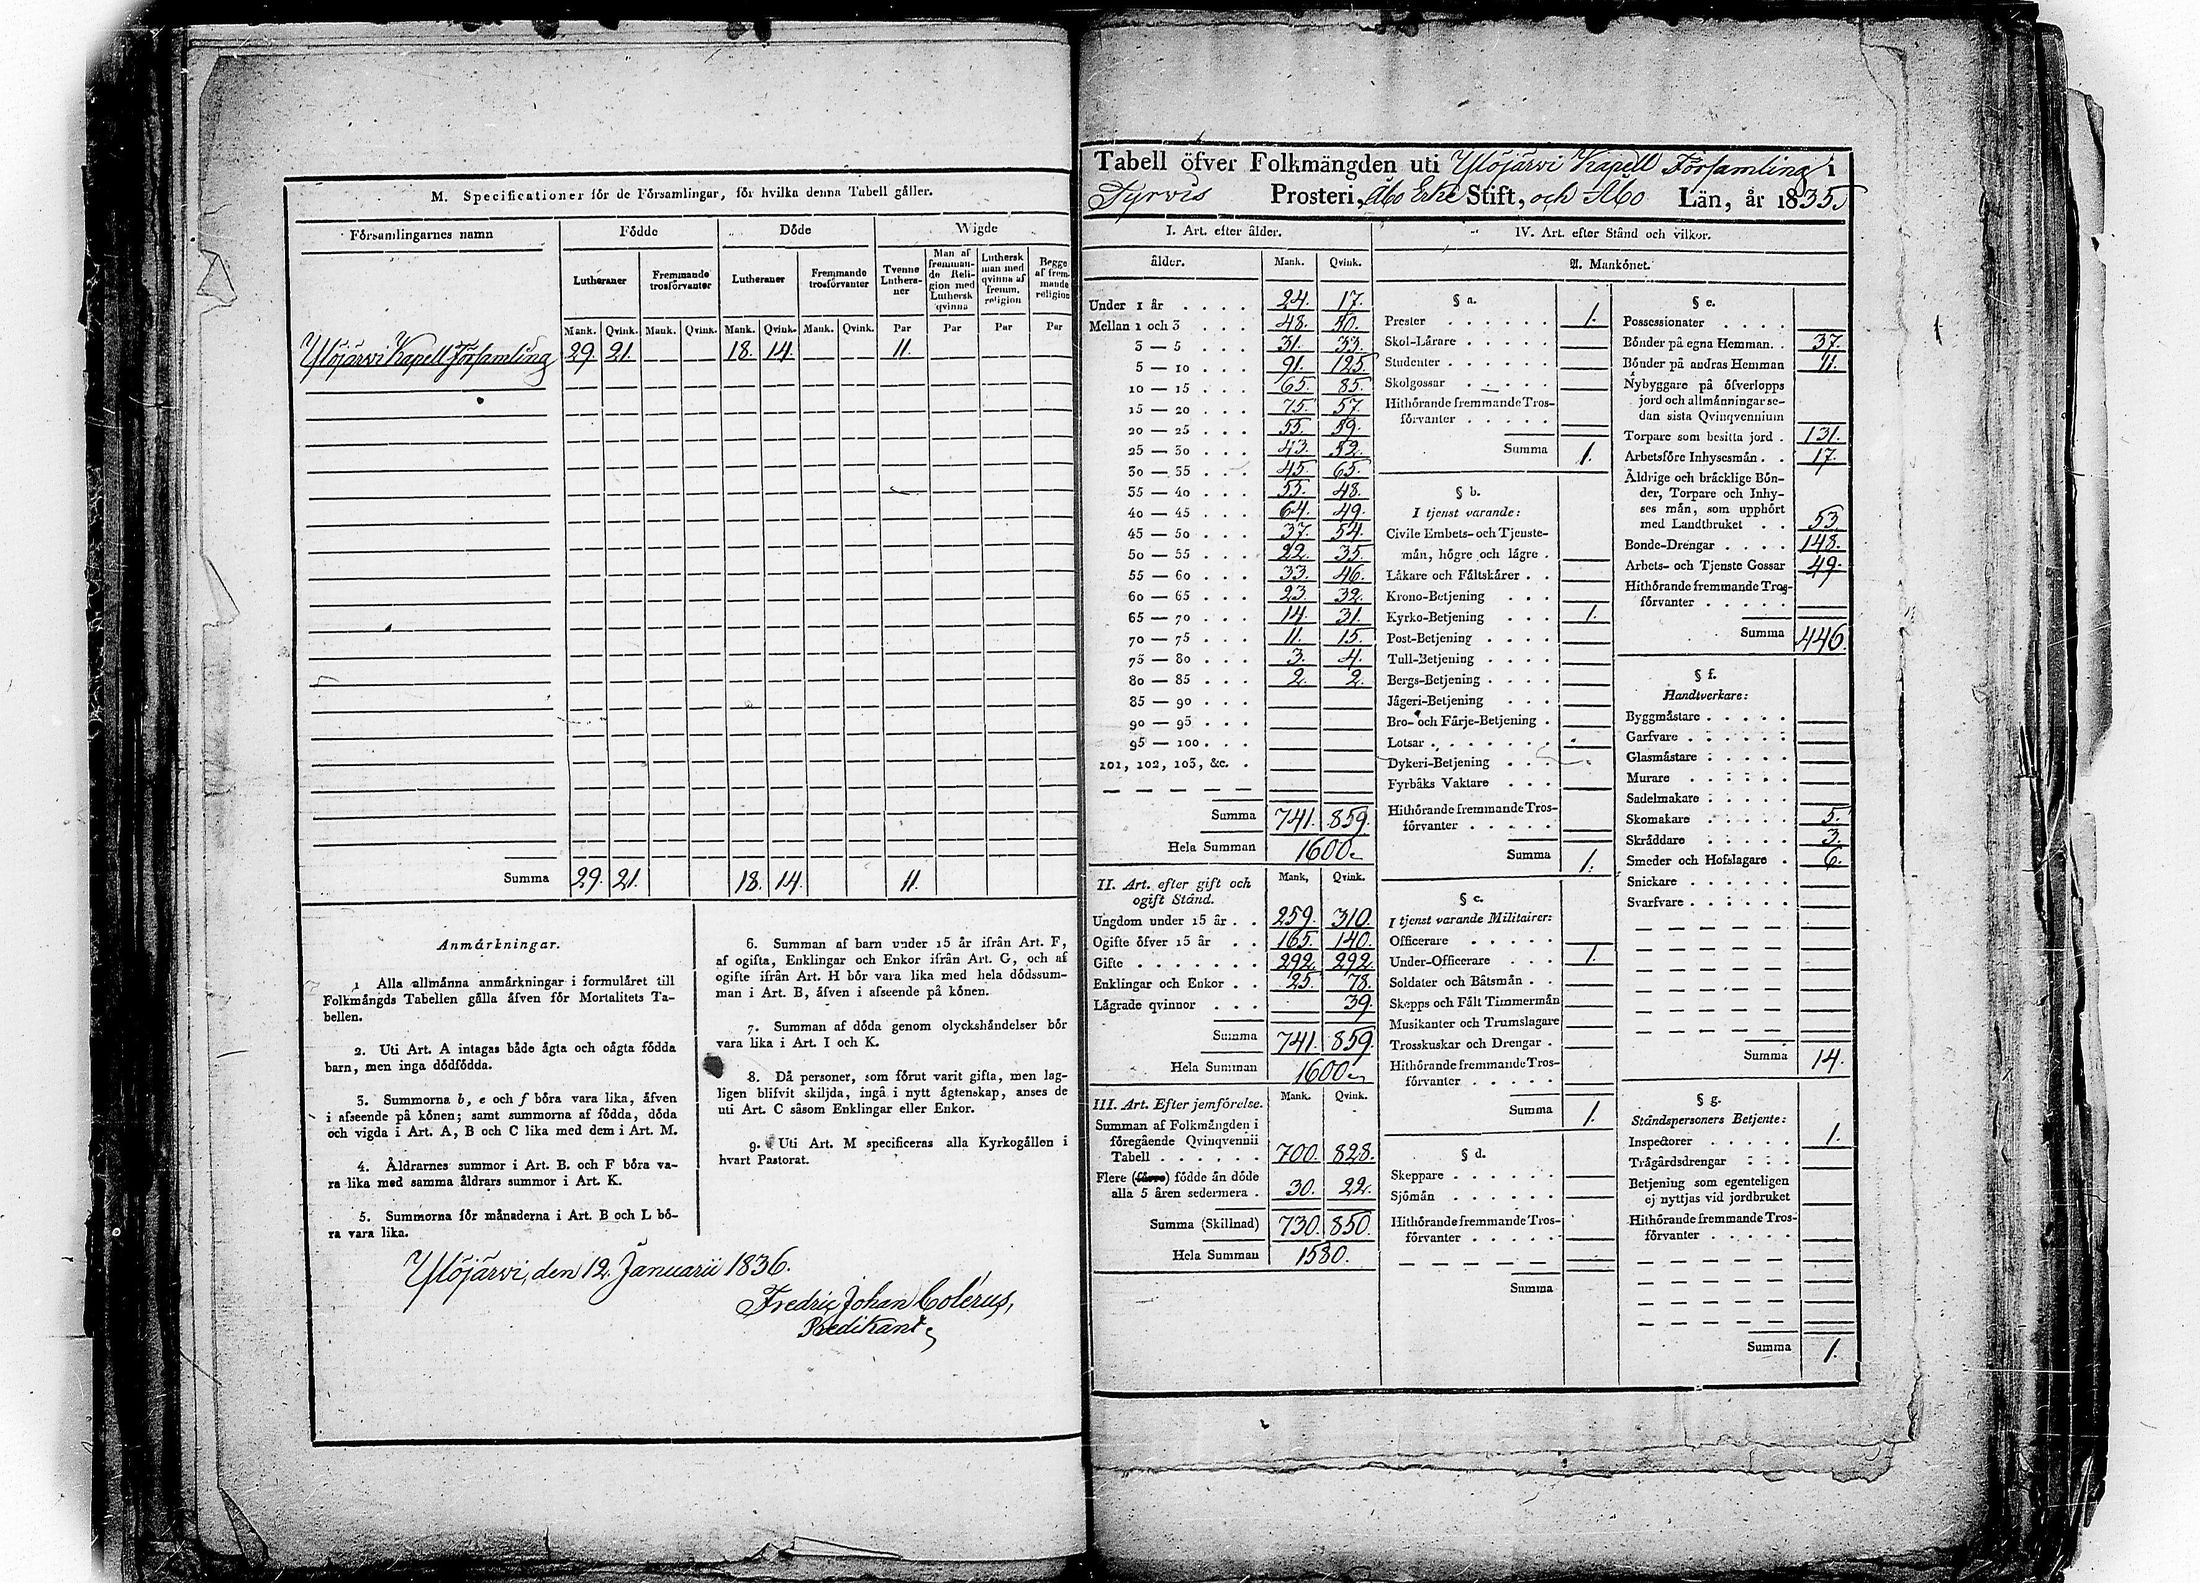 M. Specificationer för de Församlingar, för hvilka denna Tabell gäller.
Församlingarnes namn Födde Döde Wigde
Lutheraner Fremmande trosförvanter Lutheraner Fremmande trosförvanter Tvenne Lutheraner Man af fremmande Religion med Luthersk qvinna Luthersk man med qvinna af fremm. religion Begge af fremmande religion
Mank. Qvink. Mank. Qvink. Mank. Qvink. Mank. Qvink. Par Par Par Par
Ylöjärvi Kapell Församling 29. 21. 18. 14. 11.
Summa 29. 21. 18. 14. 11.
Anmärkningar.
1 Alla allmänna anmärkningar i formuläret till
Folkmängds Tabellen gälla äfven för Mortalitets Ta-
bellen.
2. Uti Art. A intagas både ägta och oägta födda
barn, men inga dödfödda.
3. Summorna b, e och f böra vara lika, äfven
i afseende på könen; samt summorna af födda, döda
och vigda i Art. A, B och C lika med dem i Art. M.
4. Åldrarnes summor i Art. B. och F böra va-
ra lika med samma åldrars summor i Art. K.
5. Summorna för månaderna i Art. B och L bö-
ra vara lika.
6. Summan af barn under 15 år ifrån Art. F,
af ogifta, Enklingar och Enkor ifrån Art. G, och af
ogifte ifrån Art. H bör vara lika med hela dödssum-
man i Art. B, äfven i afseende på könen.
7. Summan af döda genom olyckshändelser bör
vara lika i Art. I och K.
8. Då personer, som förut varit gifta, men lag-
ligen blifvit skiljda, ingå i nytt ägtenskap, anses de
uti Art. C såsom Enklingar eller Enkor.
9. Uti Art. M specificeras alla Kyrkogällen i
hvart Pastorat.
Ylöjärvi, den 12. Januarii 1836.
Fredric Johan Colérus,
Predikant
Tabell öfver Folkmängden uti Ylöjärvi Kapell Församling i
Tyrvis Prosteri, Åbo Erke Stift, och Åbo Län, år 1835
I. Art. efter ålder.
ålder. Mank. Qvink.
Under 1 år 24. 17.
Mellan 1 och 3 48. 50.
3 — 5 31. 33.
5 — 10 91. 125.
10 — 15 65. 85.
15 — 20 75. 57.
20 — 25 55. 59.
25 — 30 43. 52.
30 — 35 45. 65.
35 — 40 55. 48.
40 — 45 64. 49.
45 — 50 37. 54.
50 — 55 22. 35.
55 — 60 33. 46.
60 — 65 23. 32.
65 — 70 14. 31.
70 — 75 11. 15.
75 — 80 3. 4.
80 — 85 2. 2.
85 — 90
90 — 95
95 — 100
101, 102, 103, &c.
Summa 741. 859.
Hela Summan 1600
II. Art. efter gift och ogift Stånd. Mank, Qvink.
Ungdom under 15 år 259. 310.
Ogifte öfver 15 år 165. 140.
Gifte 292. 292.
Enklingar och Enkor 25. 78.
Lägrade qvinnor 39.
Summa 741. 859.
Hela Summan 1600
III. Art. Efter jemförelse. Mank. Qvink.
Summan af Folkmängden i
föregående Qvinqvennii
Tabell 700. 828.
Flere (färre) födde än döde
alla 5 åren sedermera 30. 22.
Summa (Skillnad) 730. 850.
Hela Summan 1580.
IV. Art. efter Stånd och vilkor.
A. Mankönet.
§ a.
Prester 1.
Skol-Lärare
Studenter
Skolgossar
Hithörande fremmande Tros-
förvanter
Summa 1.
§ b.
I tjenst varande:
Civile Embets- och Tjenste-
män, högre och lägre
Läkare och Fältskärer
Krono-Betjening
Kyrko-Betjening 1.
Post-Betjening
Tull-Betjening
Bergs-Betjening
Jägeri-Betjening
Bro- och Färje-Betjening
Lotsar
Dykeri-Betjening
Fyrbåks Vaktare
Hithörande fremmande Tros-
förvanter
Summa 1.
§ c.
I tjenst varande Militairer:
Officerare
Under-Officerare 1.
Soldater och Båtsmän
Skepps och Fält Timmermän
Musikanter och Trumslagare
Trosskuskar och Drengar
Hithörande fremmande Tros-
förvanter
Summa 1.
§ d.
Skeppare
Sjömän
Hithörande fremmande Tros-
förvanter
Summa
§ e.
Possessionater
Bönder på egna Hemman 37.
Bönder på andras Hemman 11.
Nybyggare på öfverlopps
jord och allmänningar se-
dan sista Qvinqvennium
Torpare som besitta jord 131.
Arbetsföre Inhysesmän 17.
Äldrige och bräcklige Bön-
der, Torpare och Inhy-
ses män, som upphört
med Landtbruket 53
Bonde-Drengar 148.
Arbets- och Tjenste Gossar 49.
Hithörande fremmande Tros-
förvanter
Summa 446.
§ f.
Handtverkare:
Byggmästare
Garfvare
Glasmästare
Murare
Sadelmakare
Skomakare 5.
Skräddare 3.
Smeder och Hofslagare 6.
Snickare
Svarfvare
Summa 14.
§ g.
Ståndspersoners Betjente:
Inspectorer 1.
Trägårdsdrengar
Betjening som egenteligen
ej nyttjas vid jordbruket
Hithörande fremmande Tros-
förvanter
Summa 1.